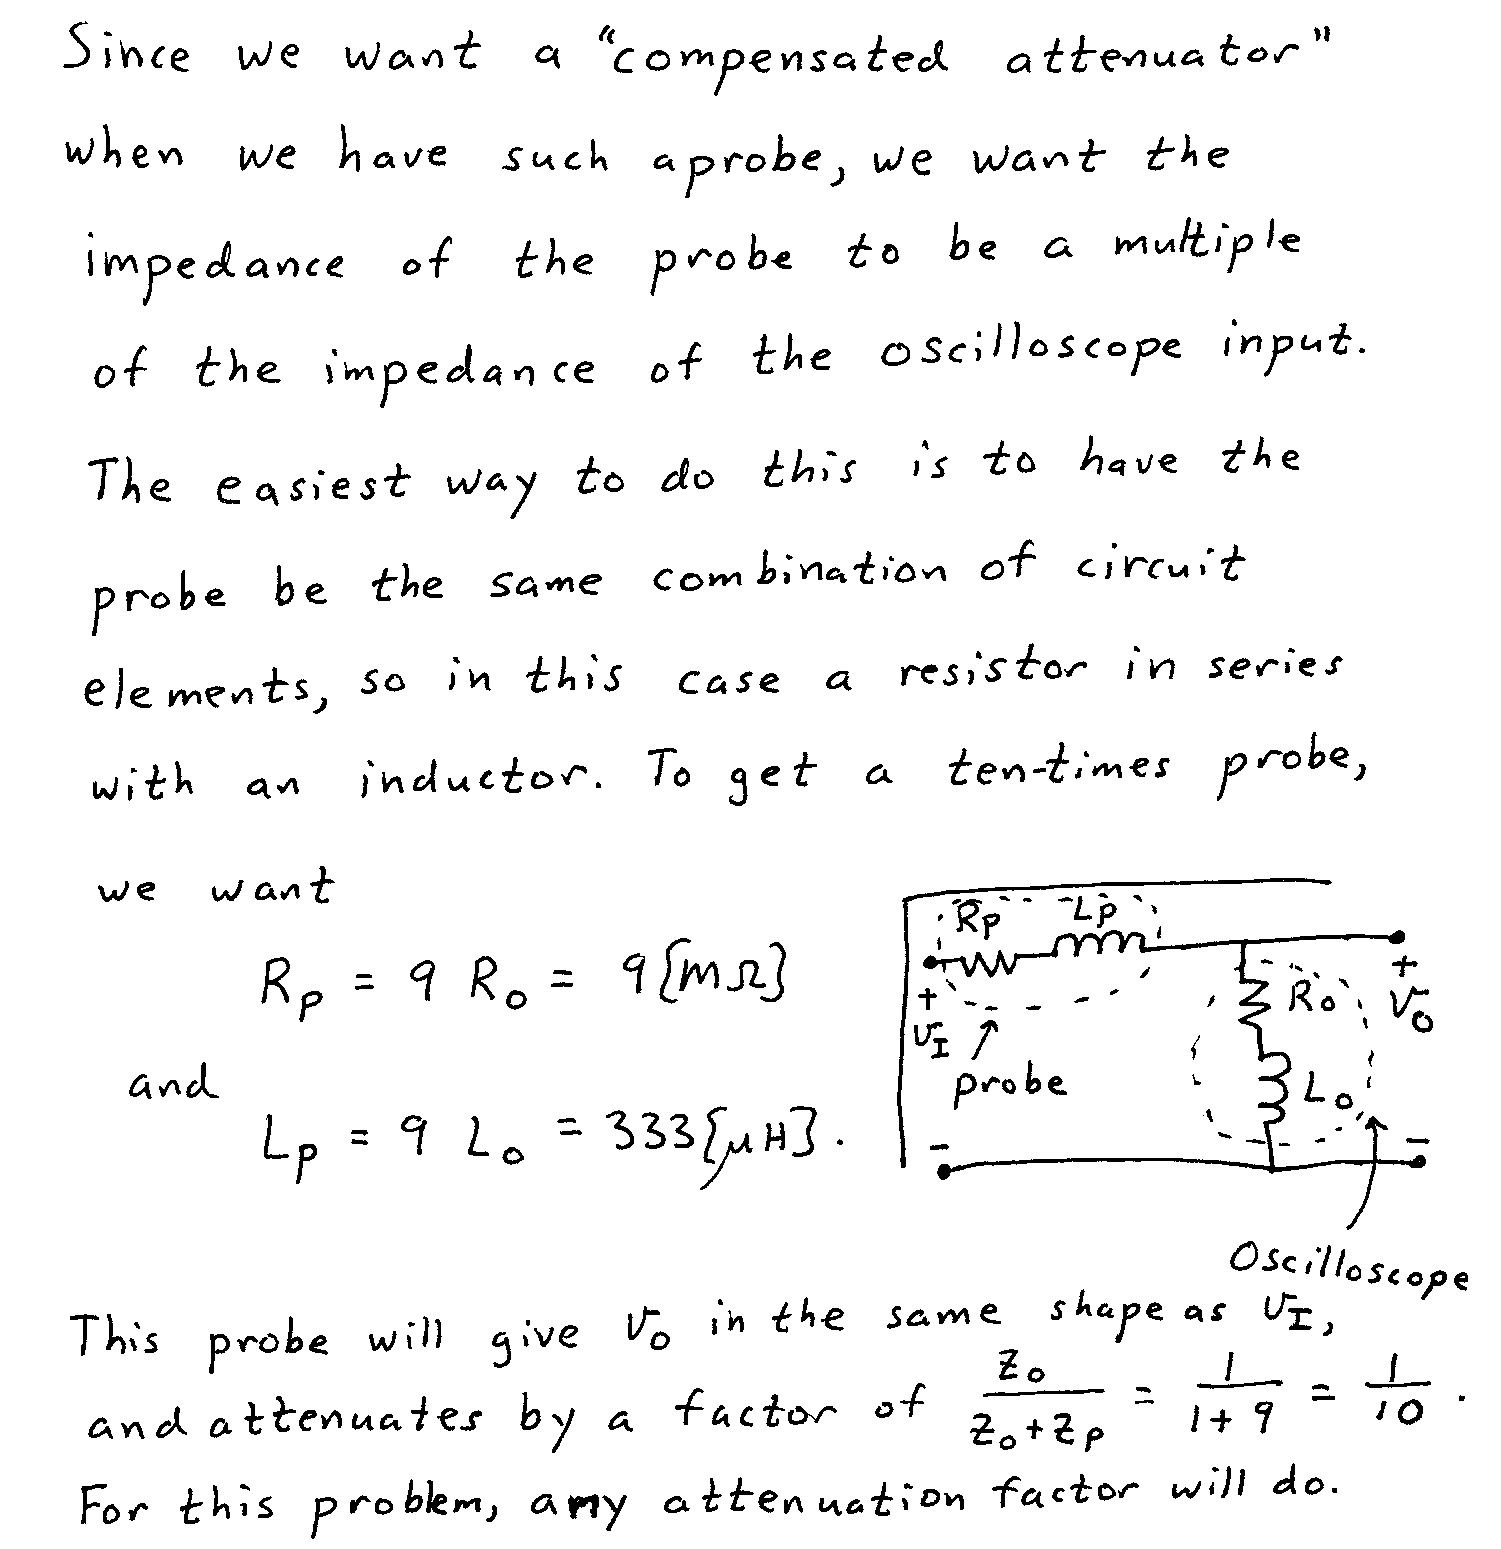 Since we want a "compensated attenuator"
when we have such aprobe, we want the
impedance of the probe to be a multiple
of the impedance of the oscilloscope input.
The easiest way to do this is to have the
probe be the same combination of circuit
elements, so in this case a resistor in series
with an inductor. To get a ten-times probe,
we want
R_p = 9 R_o = 9[mΩ]
and
L_p = 9 L_o = 333[μH].
R_p L_p
+ v_I
probe
-
R_o
L_o
+ v_o
-
Oscilloscope
This probe will give v_o in the same shape as v_I,
and attenuates by a factor of Z_o/(Z_o+Z_p) = 1/(1+9) = 1/10.
For this problem, any attenuation factor will do.